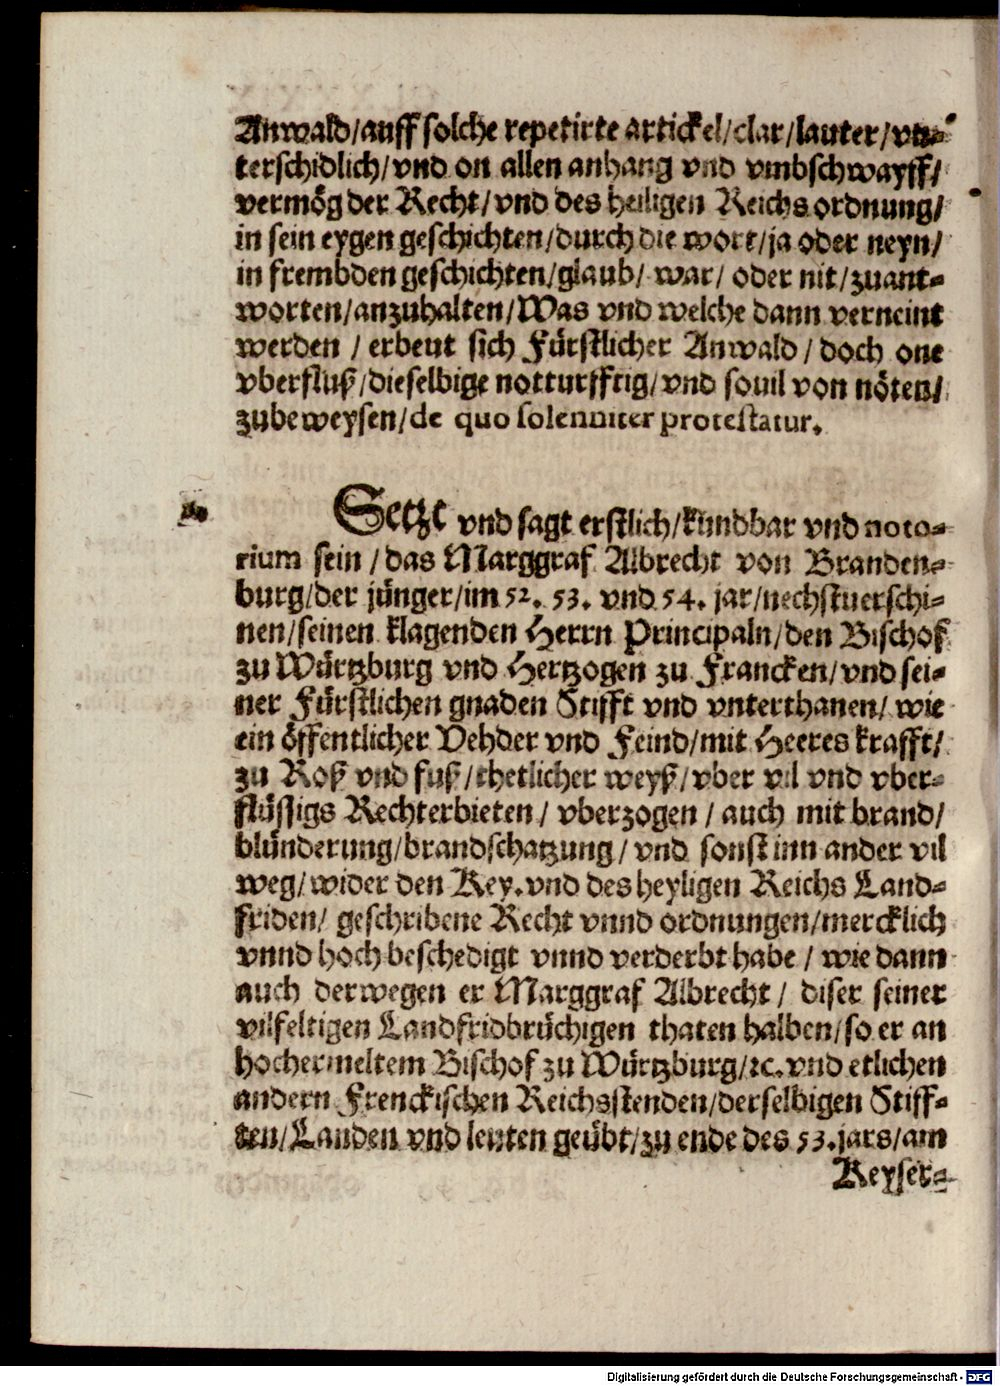 Anwald/auff solche repetirte artickel/clar/lauter/vn-
terschidlich/vnd on allen anhang vnd vmbschwayff/
vermög der Recht/vnd des heiligen Reichs ordnung/
in sein eygen geschichten/durch die wort/ja oder neyn/
in frembden geschichten/glaub/ war/ oder nit/zuant-
worten/anzuhalten/Was vnd welche dann verneint
werden / erbeut sich Fürstlicher Anwald/ doch one
vberfluß/dieselbige notturfftig/vnd souil von nöten/
zubeweysen/de quo solenniter protestatur.
Setzt vnd sagt erstlich/kündbar vnd noto-
rium sein /das Marggraf Albrecht von Branden-
burg/der jünger/im 52. 53. vnd 54. jar/nechstuerschi-
nen/seinen klagenden Herrn Principaln/den Bischof
zu Würtzburg vnd Hertzogen zu Francken/vnd sei-
ner Fürstlichen gnaden Stifft vnd vnterthanen/ wie
ein öffentlicher Vehder vnd Feind/mit Heeres krafft/
zu Roß vnd fuß/thetlicher weyß/vber vil vnd vber-
flüssigs Rechterbieten/ vberzogen / auch mit brand/
blünderung/brandschatzung/ vnd sonst inn ander vil
weg/wider den Key. vnd des heyligen Reichs Land-
friden/ geschribene Recht vnnd ordnungen/mercklich
vnnd hoch beschedigt vnnd verderbt habe / wie dann
auch derwegen er Marggraf Albrecht/ diser seiner
vilfeltigen Landfridbrüchigen thaten halben/so er an
hochermeltem Bischof zu Würtzburg/ꝛc. vnd etlichen
andern Frenckischen Reichsstenden/derselbigen Stiff-
ten/Landen vnd leuten geübt/zu ende des 53. jars/am
Keyser-
Digitalisierung gefördert durch die Deutsche Forschungsgemeinschaft - DFG